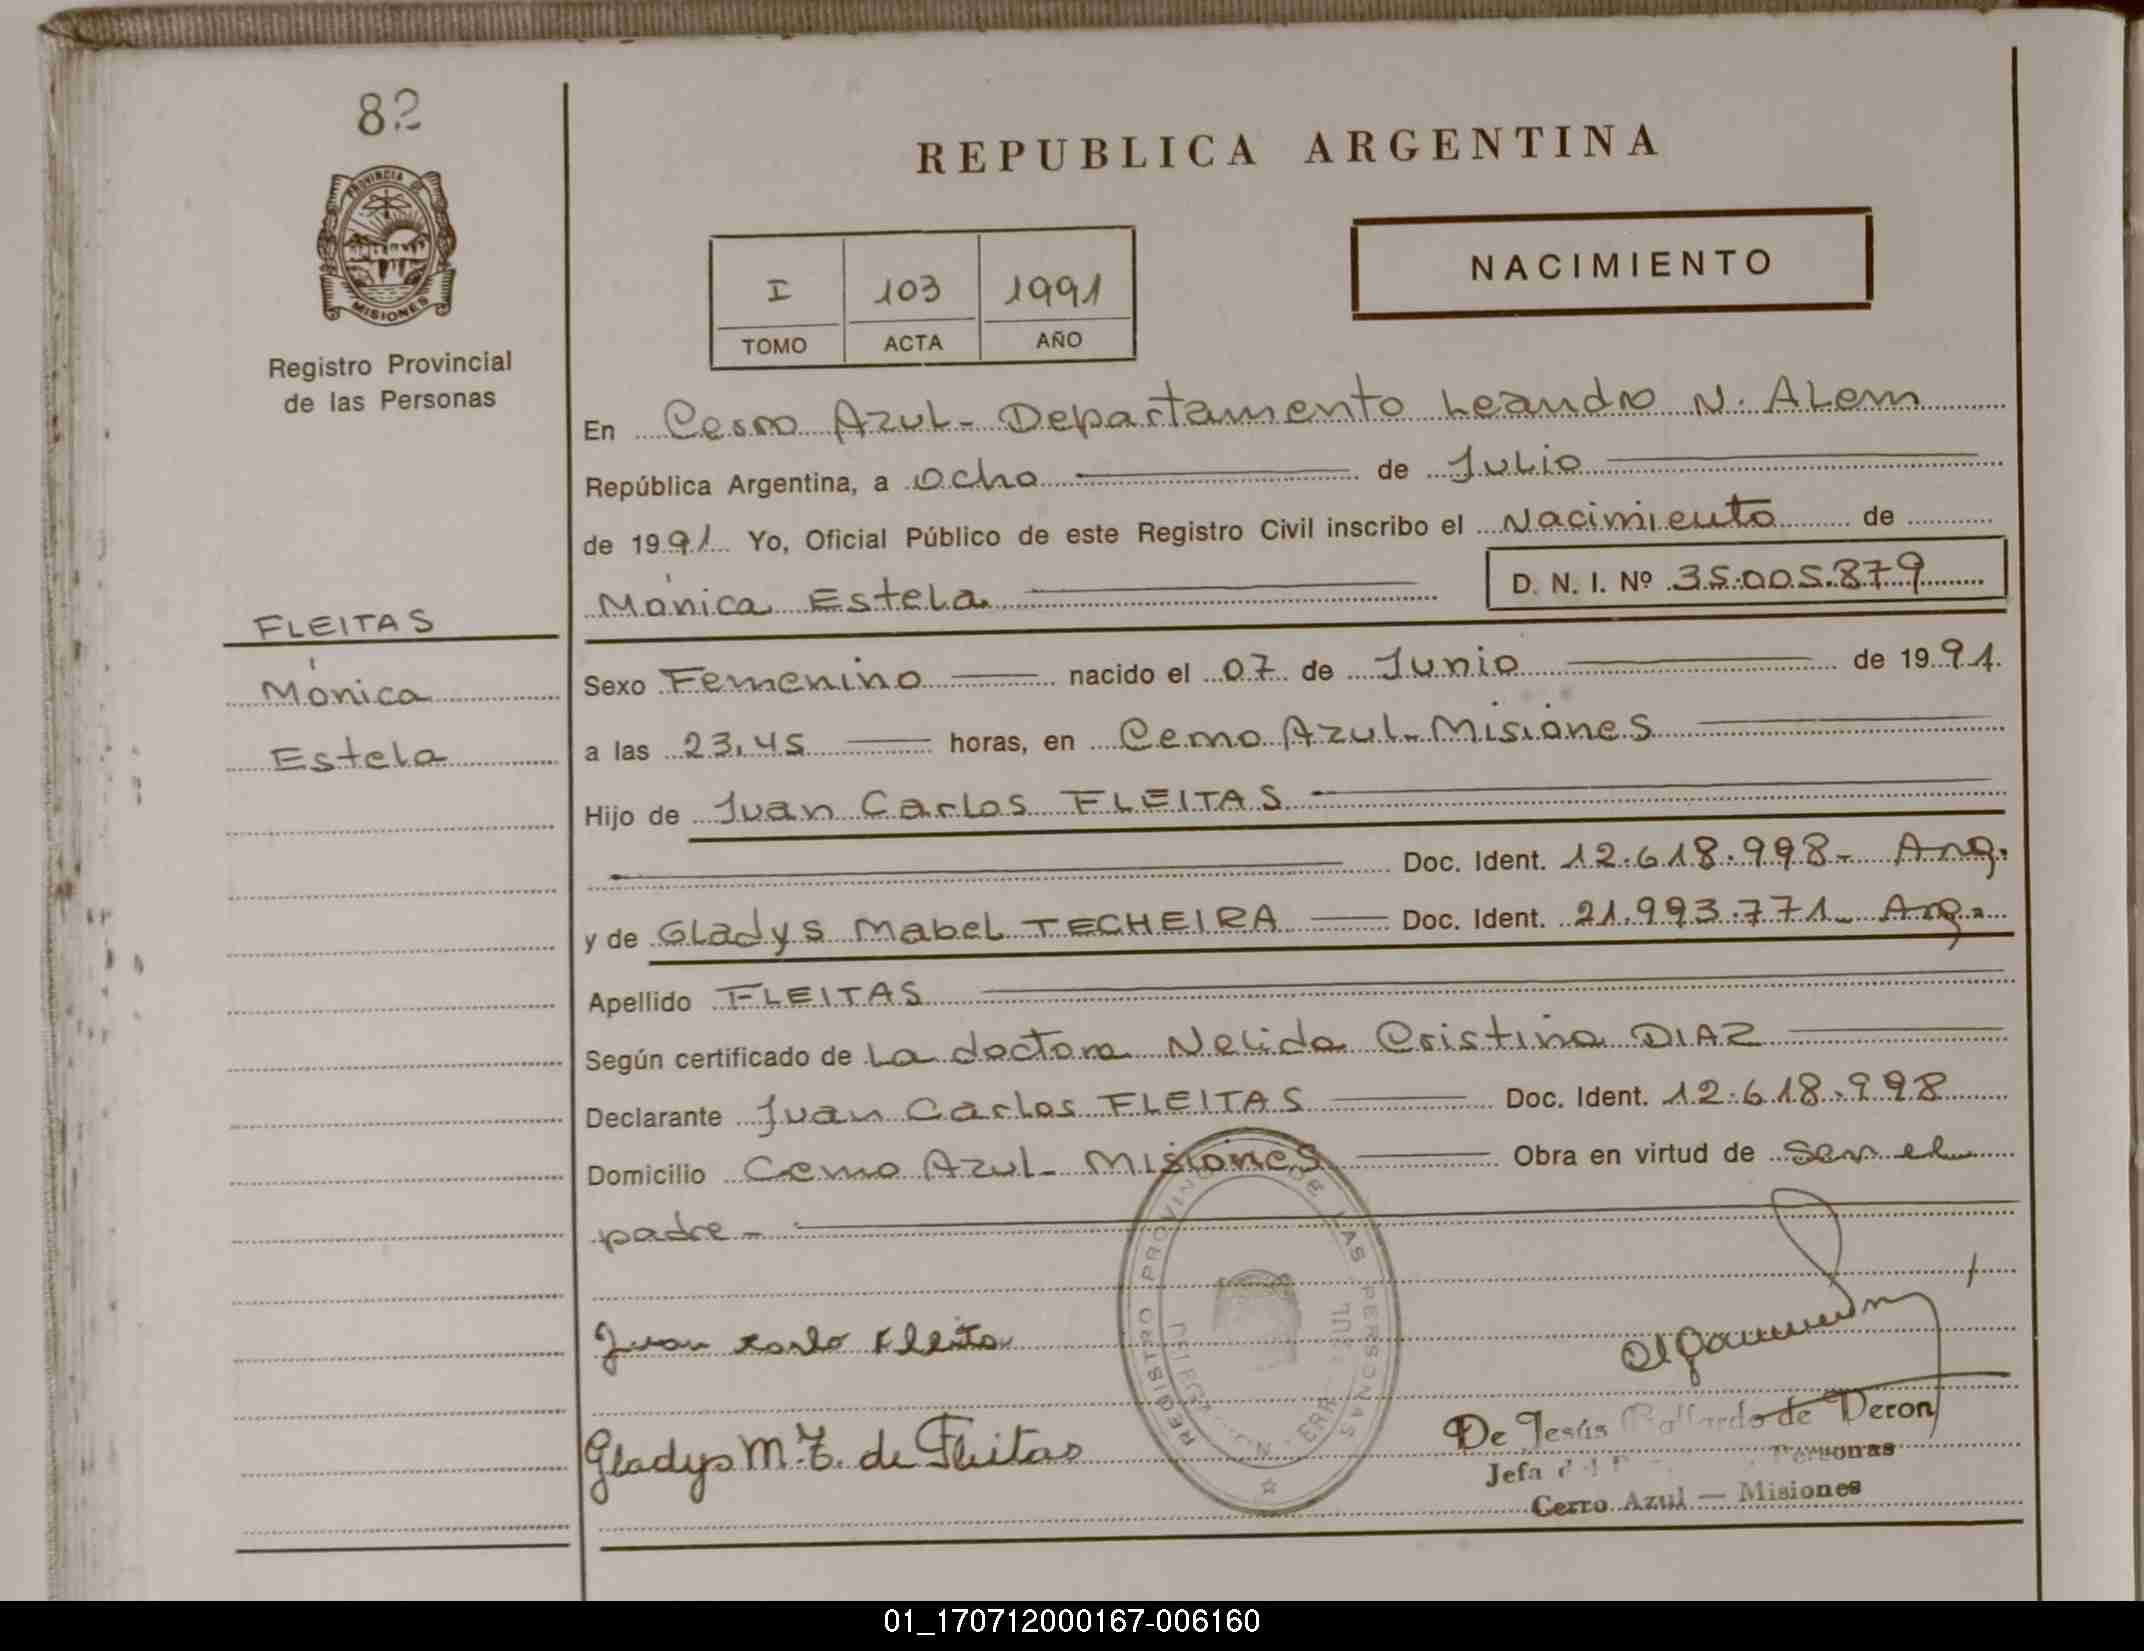 82
PROVINCIA DE
MISIONES
Registro Provincial
de las Personas
REPUBLICA ARGENTINA
I 103 1991
TOMO ACTA AÑO
NACIMIENTO
En Cerro Azul - Departamento Leandro N. Alem
República Argentina, a ocho de Julio
de 1991 Yo, Oficial Público de este Registro Civil inscribo el Nacimiento de
Mónica Estela D. N. I. Nº 35.005.879
FLEITAS
Mónica
Estela
Sexo Femenino nacido el 07 de Junio de 1991.
a las 23,45 horas, en Cerro Azul - Misiones
Hijo de Juan Carlos FLEITAS
Doc. Ident. 12.618.998 - Arg.
y de Gladys Mabel TECHEIRA Doc. Ident. 21.993.771 - Arg.
Apellido FLEITAS
Según certificado de La doctora Nelida Cristina DIAZ
Declarante Juan Carlos FLEITAS Doc. Ident. 12.618.998
Domicilio Cerro Azul - Misiones Obra en virtud de ser el
padre -
REGISTRO PROVINCIAL DE LAS PERSONAS
Juan Karlo Fleita
Gladys M. T. de Fleitas
De Jesús Gallardo de Deron
Jefa del Personas
Cerro Azul — Misiones
01_170712000167-006160